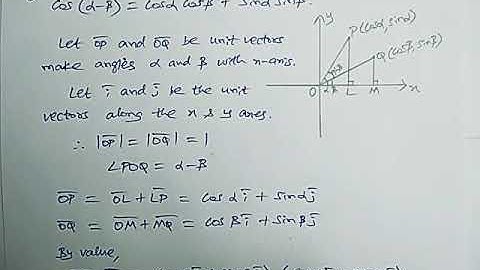 cos (α-β) = cosα cosβ + sinα sinβ.
Let O̅P̅ and O̅Q̅ be unit vectors
make angles α and β with x-axis.
Let i̅ and j̅ be the unit
vectors along the x & y axes.
∴ |O̅P̅| = |O̅Q̅| = 1
∠POQ = α-β
O̅P̅ = O̅L̅ + L̅P̅ = cosα i̅ + sinα j̅
O̅Q̅ = O̅M̅ + M̅Q̅ = cosβ i̅ + sinβ j̅
By value,
y
P(cosα, sinα)
Q(cosβ, sinβ)
O
L
M
x